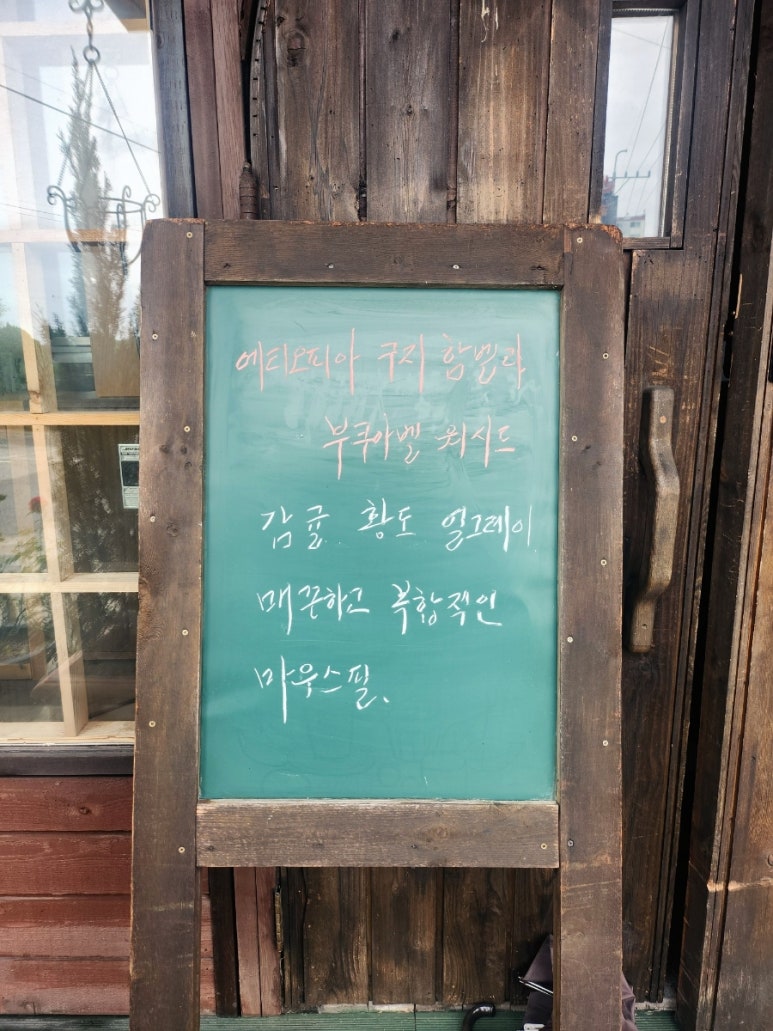 에티오피아 구지 함벨라
부쿠아벨 워시드
감귤 황도 얼그레이
매끈하고 복합적인
마우스필.